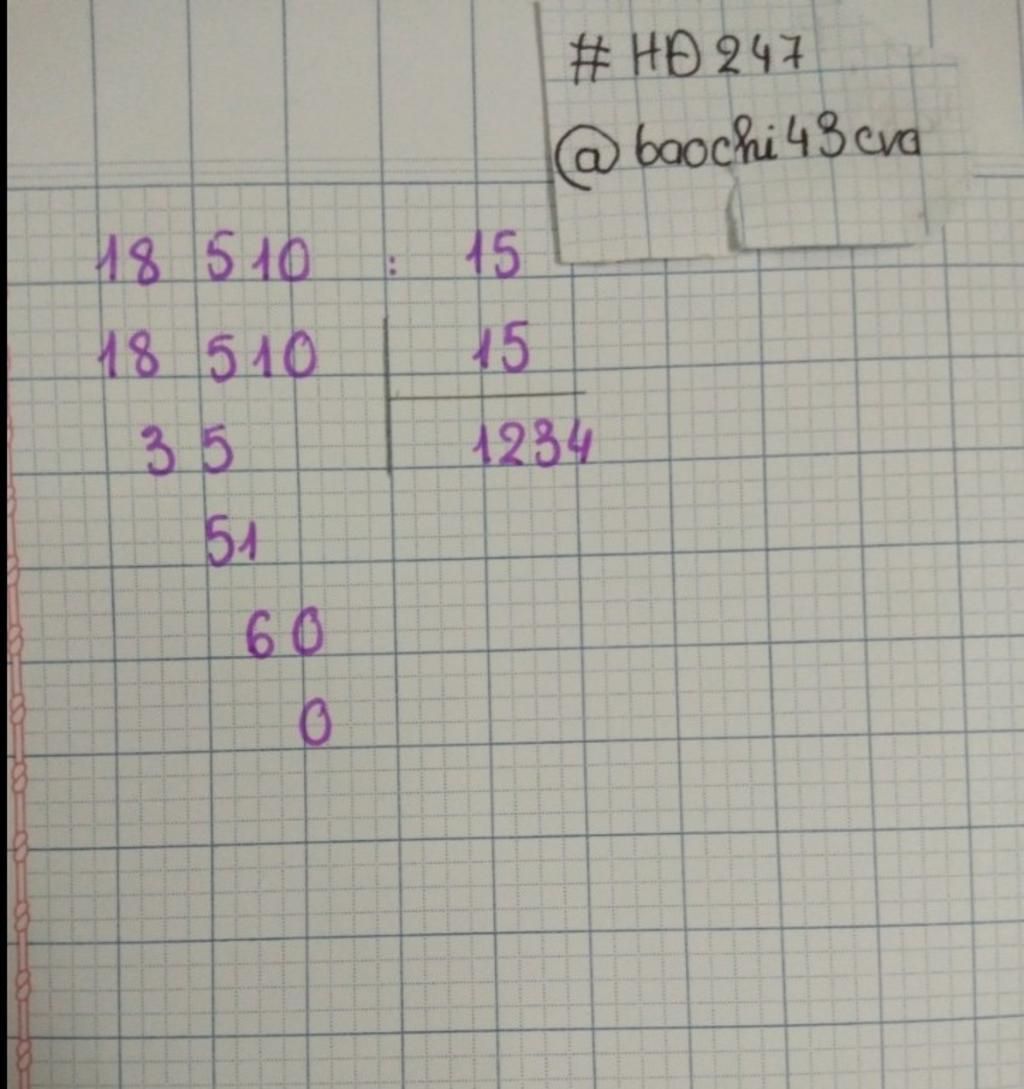 # HĐ 247
@baochi43cva
18 510 : 15
18 510 15
35 1234
51
60
0